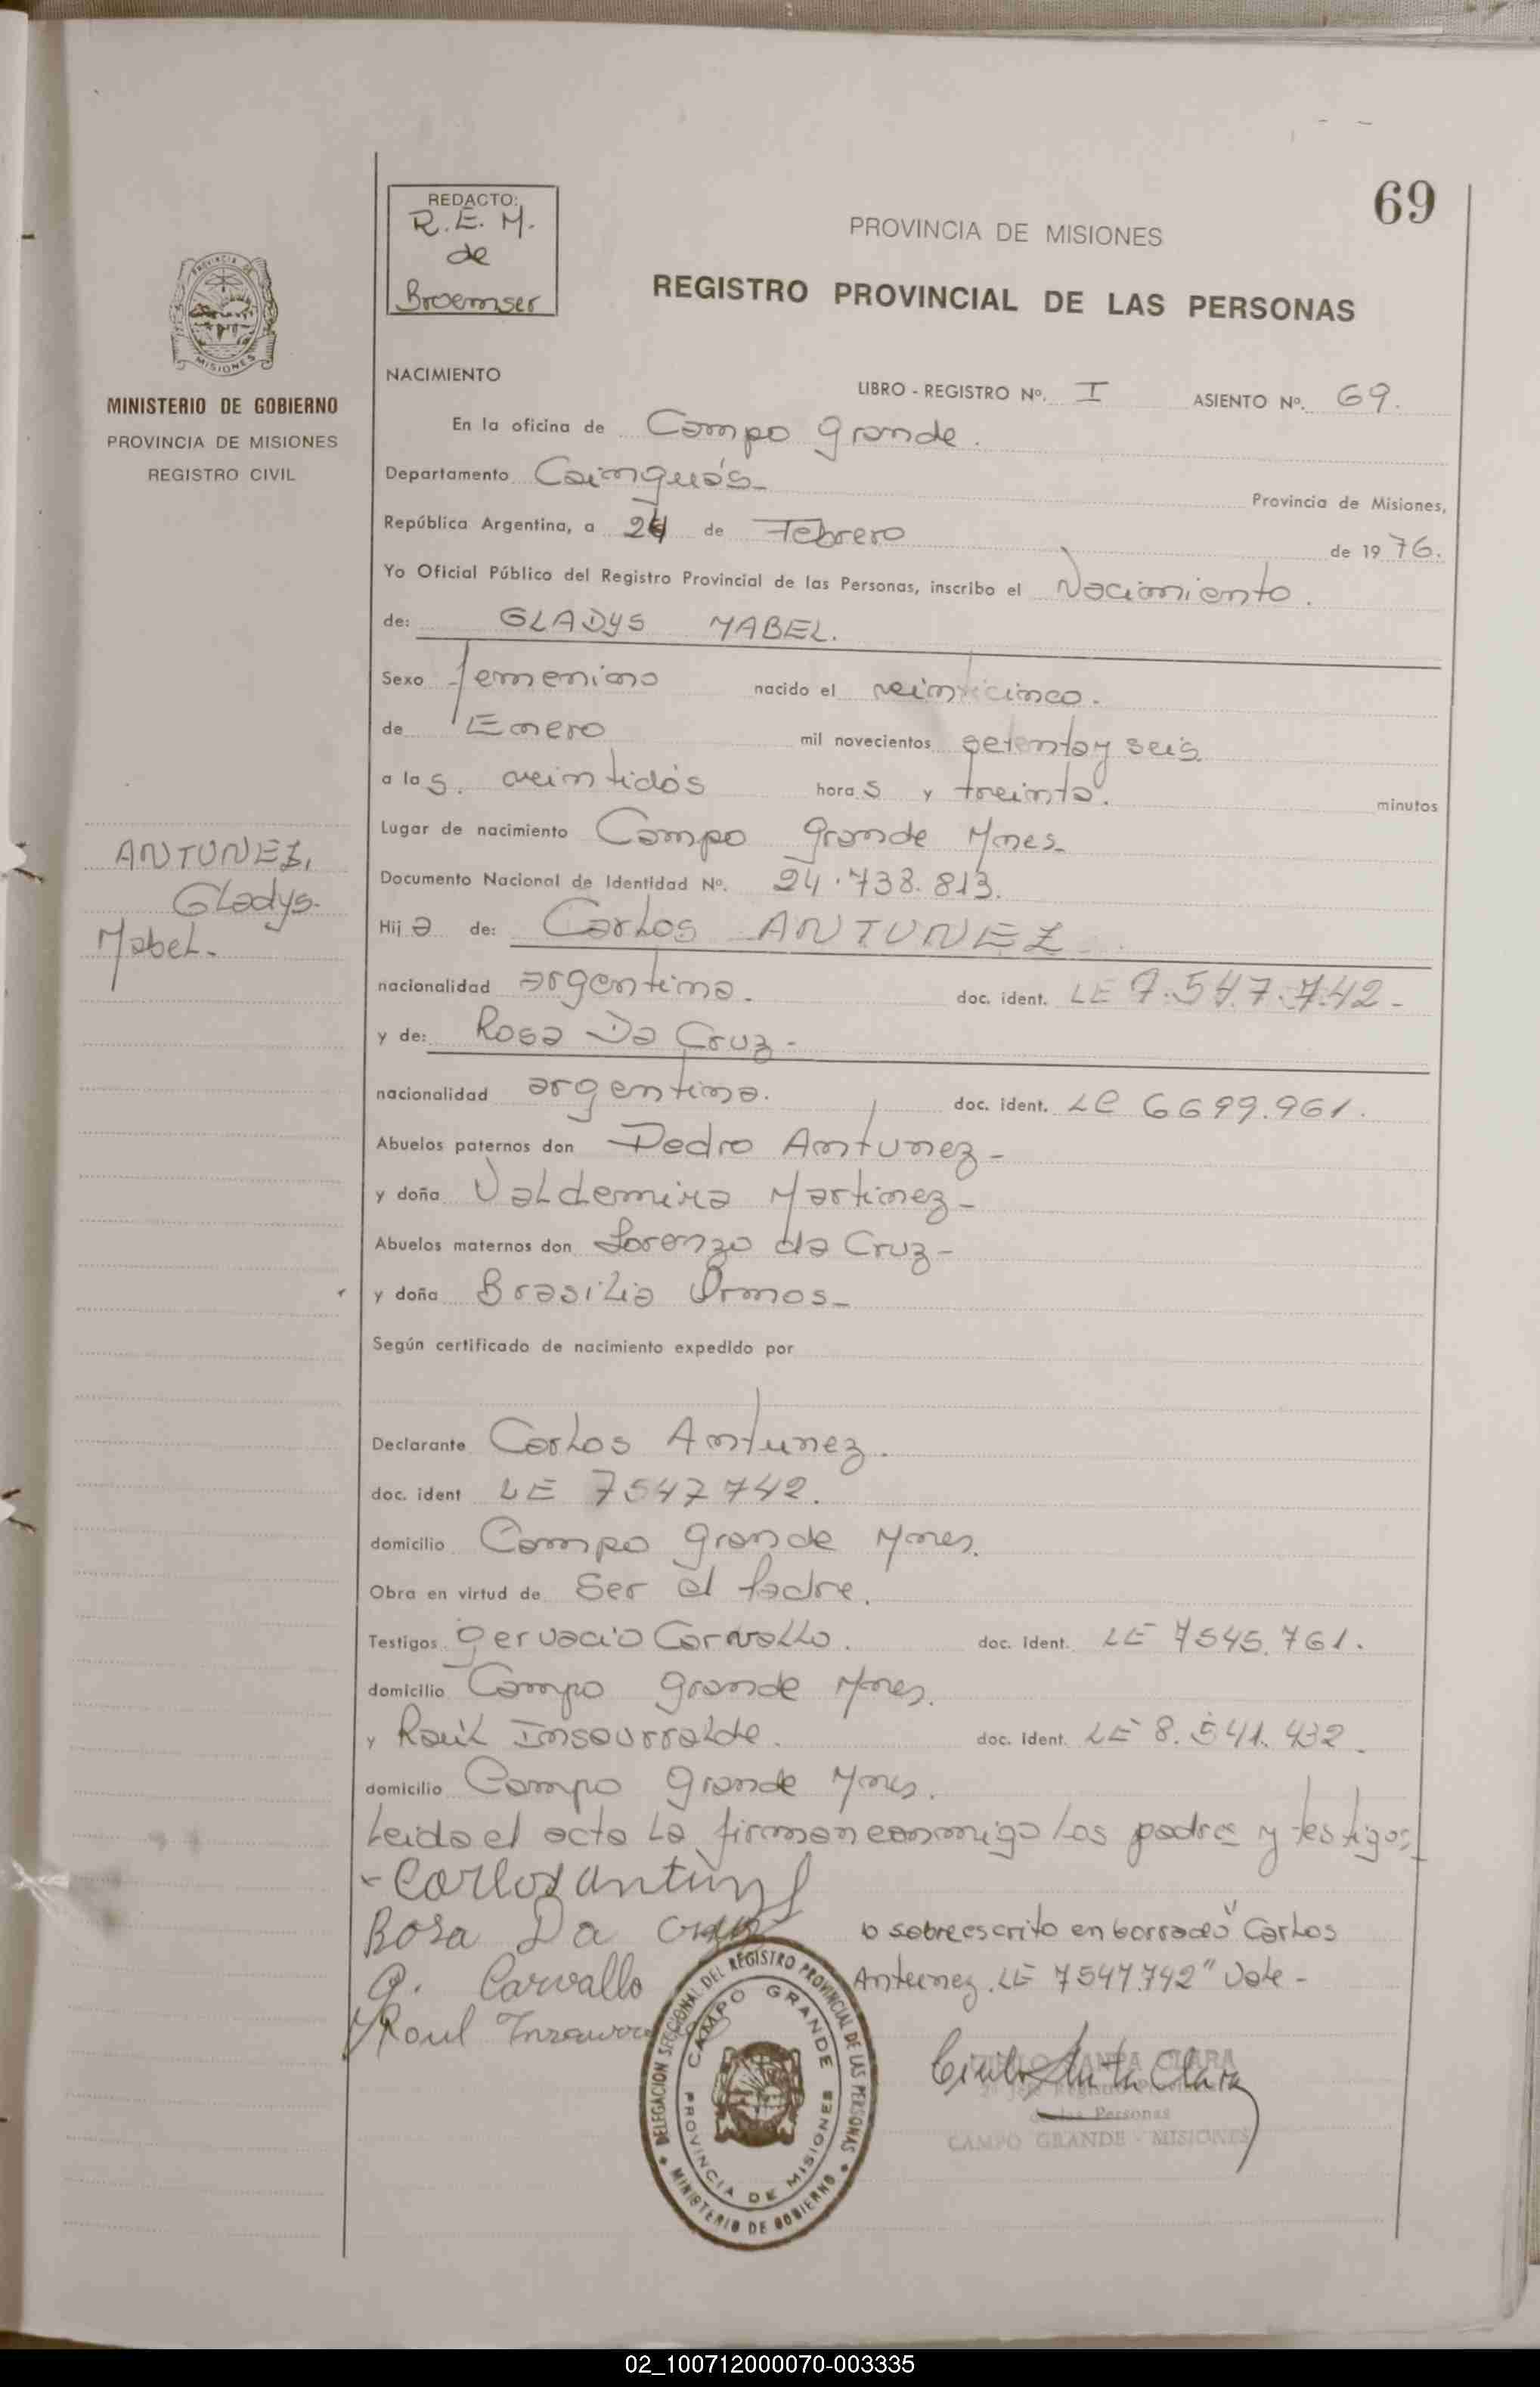 69
REDACTO:
R.E.M.
de
Broemser
PROVINCIA DE MISIONES
REGISTRO PROVINCIAL DE LAS PERSONAS
PROVINCIA DE
MISIONES
MINISTERIO DE GOBIERNO
PROVINCIA DE MISIONES
REGISTRO CIVIL
ANTUNEZ,
Gladys.
Mabel.
NACIMIENTO
LIBRO - REGISTRO Nº. I ASIENTO Nº. 69.
En la oficina de Campo Grande.
Departamento Cainguás- Provincia de Misiones,
República Argentina, a 24 de Febrero de 1976.
Yo Oficial Público del Registro Provincial de las Personas, inscribo el Nacimiento.
de: GLADYS MABEL.
Sexo femenino nacido el veinticinco.
de Enero mil novecientos setenta y seis
a las. veintidós horas y treinta. minutos
Lugar de nacimiento Campo Grande Mnes.
Documento Nacional de Identidad Nº. 24.738.813.
Hija de: Carlos ANTUNEZ
nacionalidad argentina. doc. ident. LE 7.547.742-
y de: Rosa Da Cruz-
nacionalidad argentina. doc. ident. LC 6699.961.
Abuelos paternos don Pedro Antunez-
y doña Valdemira Martinez-
Abuelos maternos don Lorenzo da Cruz-
y doña Brasilia Ormos-
Según certificado de nacimiento expedido por
Declarante Carlos Antunez.
doc. ident LE 7547742.
domicilio Campo Grande Mnes.
Obra en virtud de Ser el Padre.
Testigos Gervacio Carvallo. doc. ident. LE 7545.761.
domicilio Campo Grande Mnes.
y Raúl Insaurralde. doc. ident. LE 8.541.432.
domicilio Campo Grande Mnes.
Leida el acta la firman conmigo los padres y testigos
- Carlos antunez
Rosa Da Cruz
G. Carvallo
Raul Insaurralde
lo sobreescrito en borrado "Carlos
Antunez. LE 7547.742" Vale-
DELEGACION SECCIONAL DEL REGISTRO PROVINCIAL DE LAS PERSONAS
MINISTERIO DE GOBIERNO
CAMPO GRANDE
PROVINCIA DE MISIONES
Cirilo Santa Clara
CIRILO SANTA CLARA
de las Personas
CAMPO GRANDE - MISIONES
02_100712000070-003335